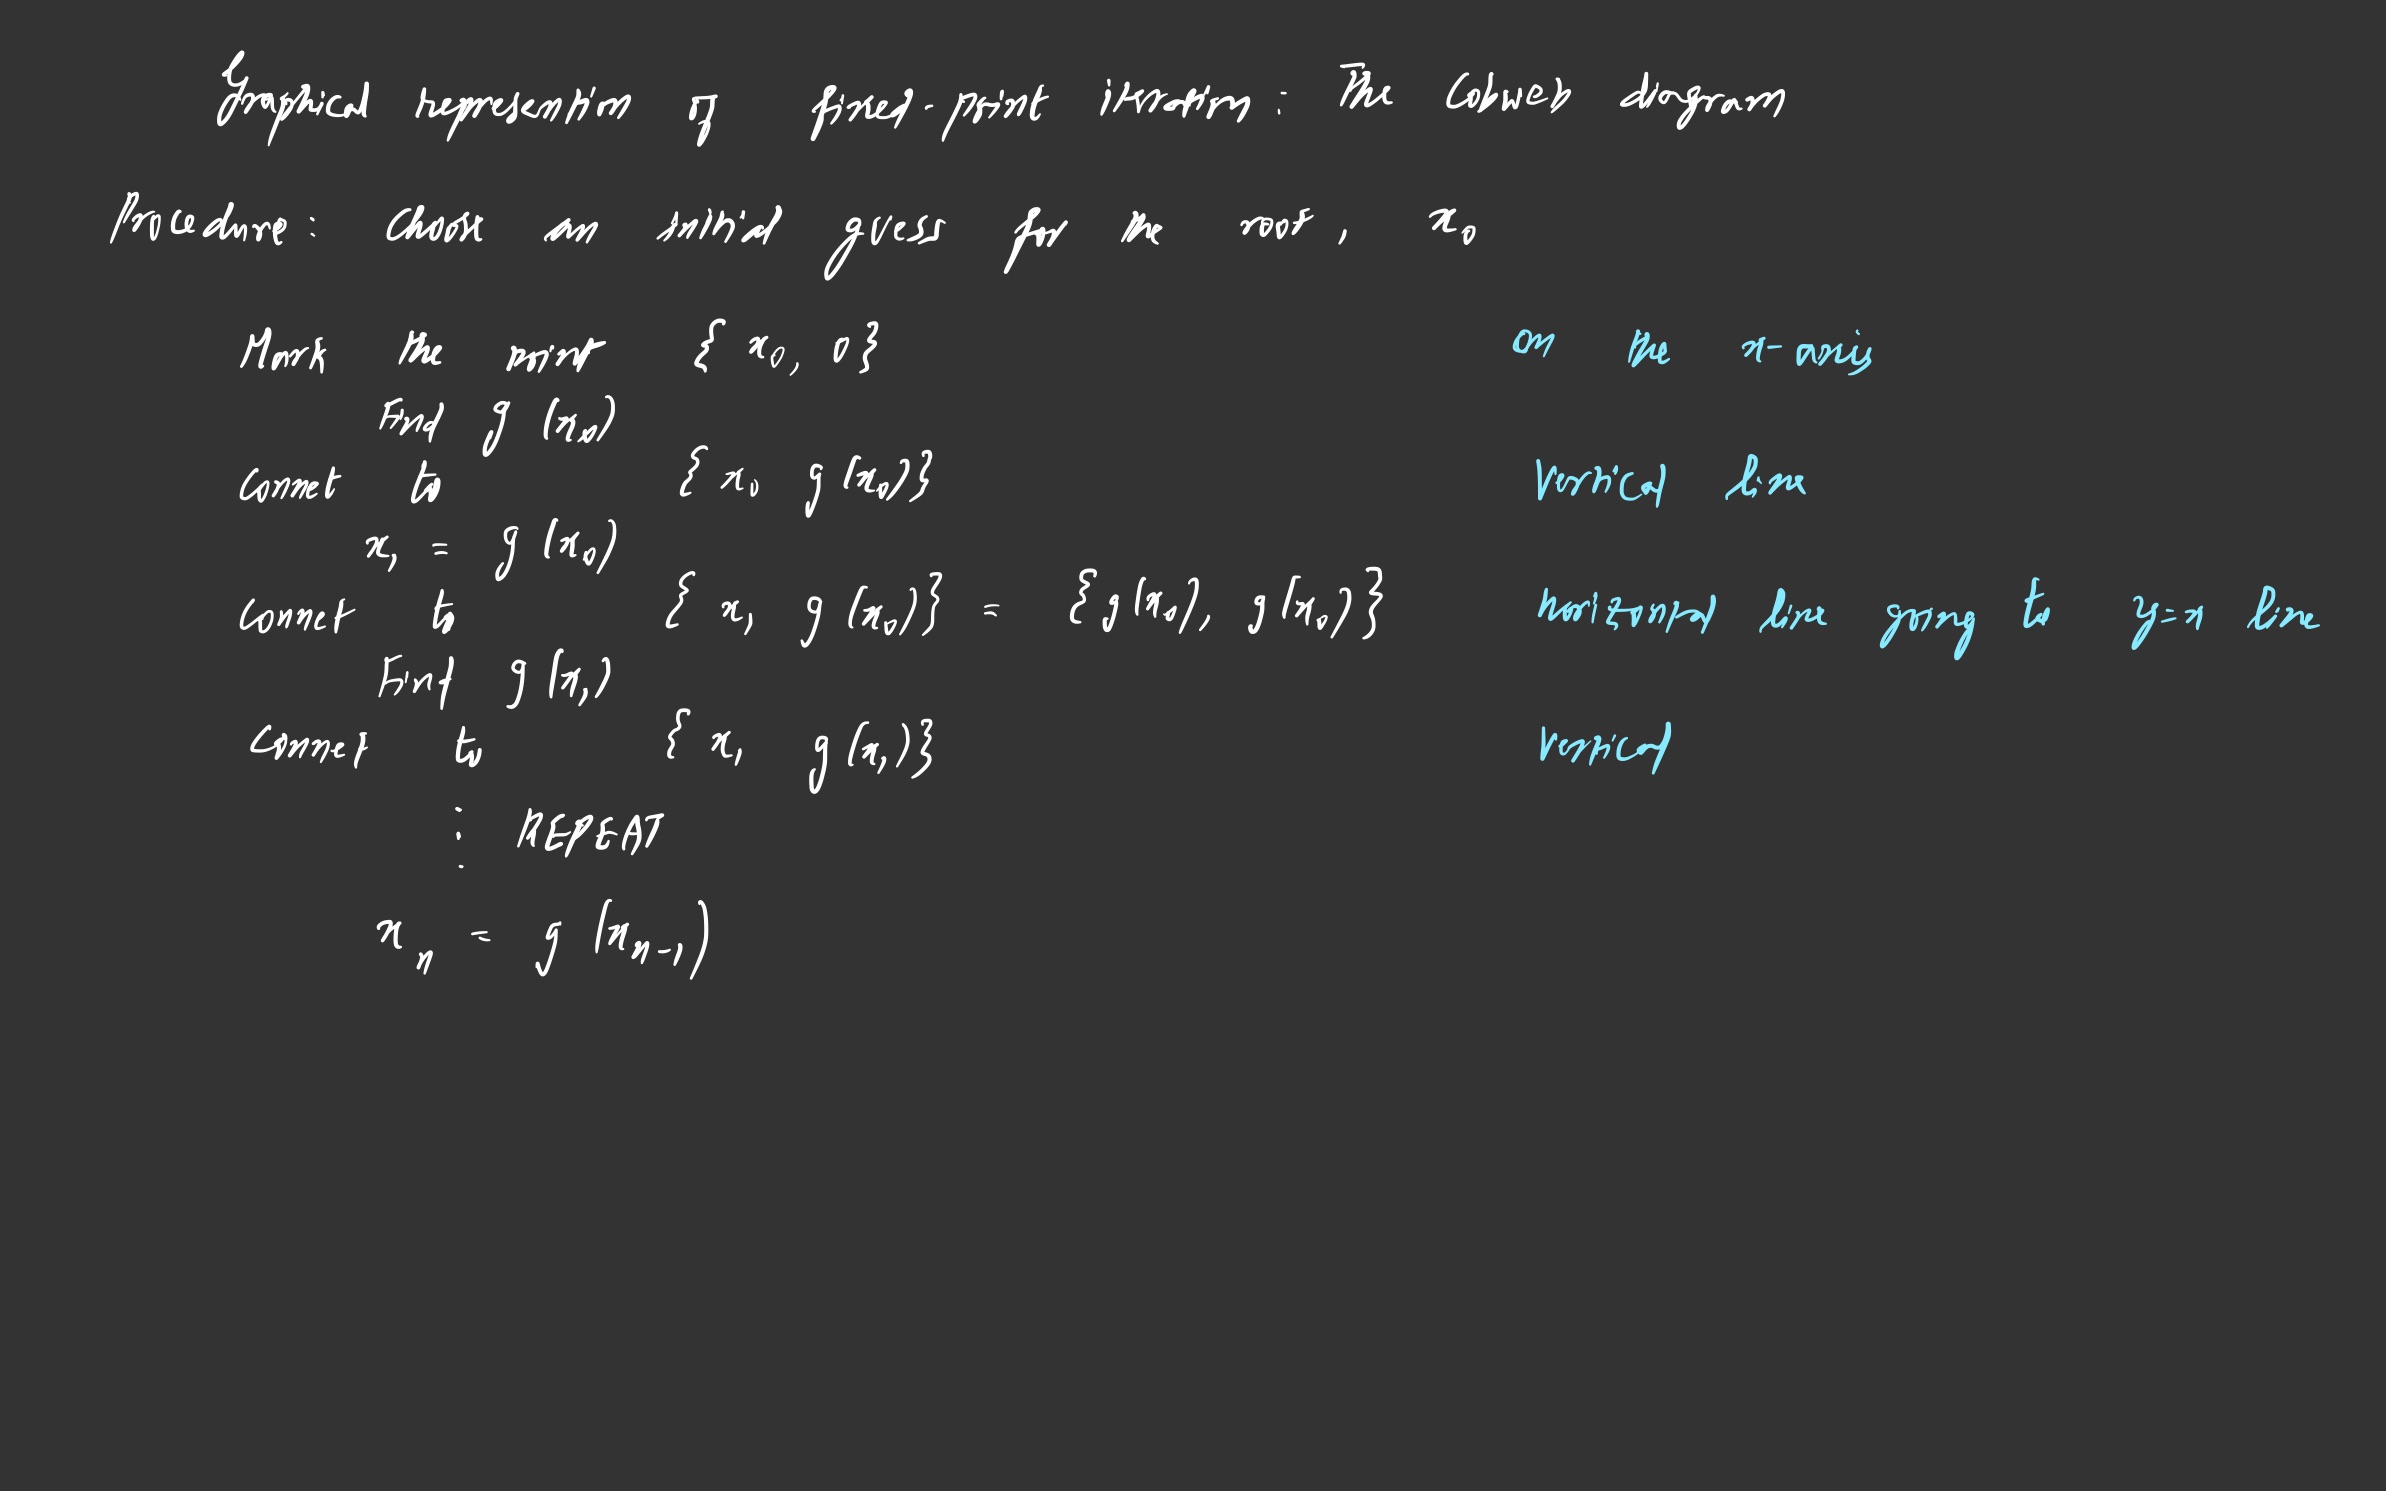 Graphical representation of fixed-point iteration: The Cobweb diagram
Procedure: Choose an initial guess for the root, x₀
Mark the point {x₀, 0} on the x-axis
Find g(x₀)
Connect to {x₀ g(x₀)} Vertical line
x₁ = g(x₀)
Connect to {x₁ g(x₀)} = {g(x₀), g(x₀)} Horizontal line going to y=x line
Find g(x₁)
Connect to {x₁ g(x₁)} Vertical
⋮ REPEAT
xₙ = g(xₙ₋₁)